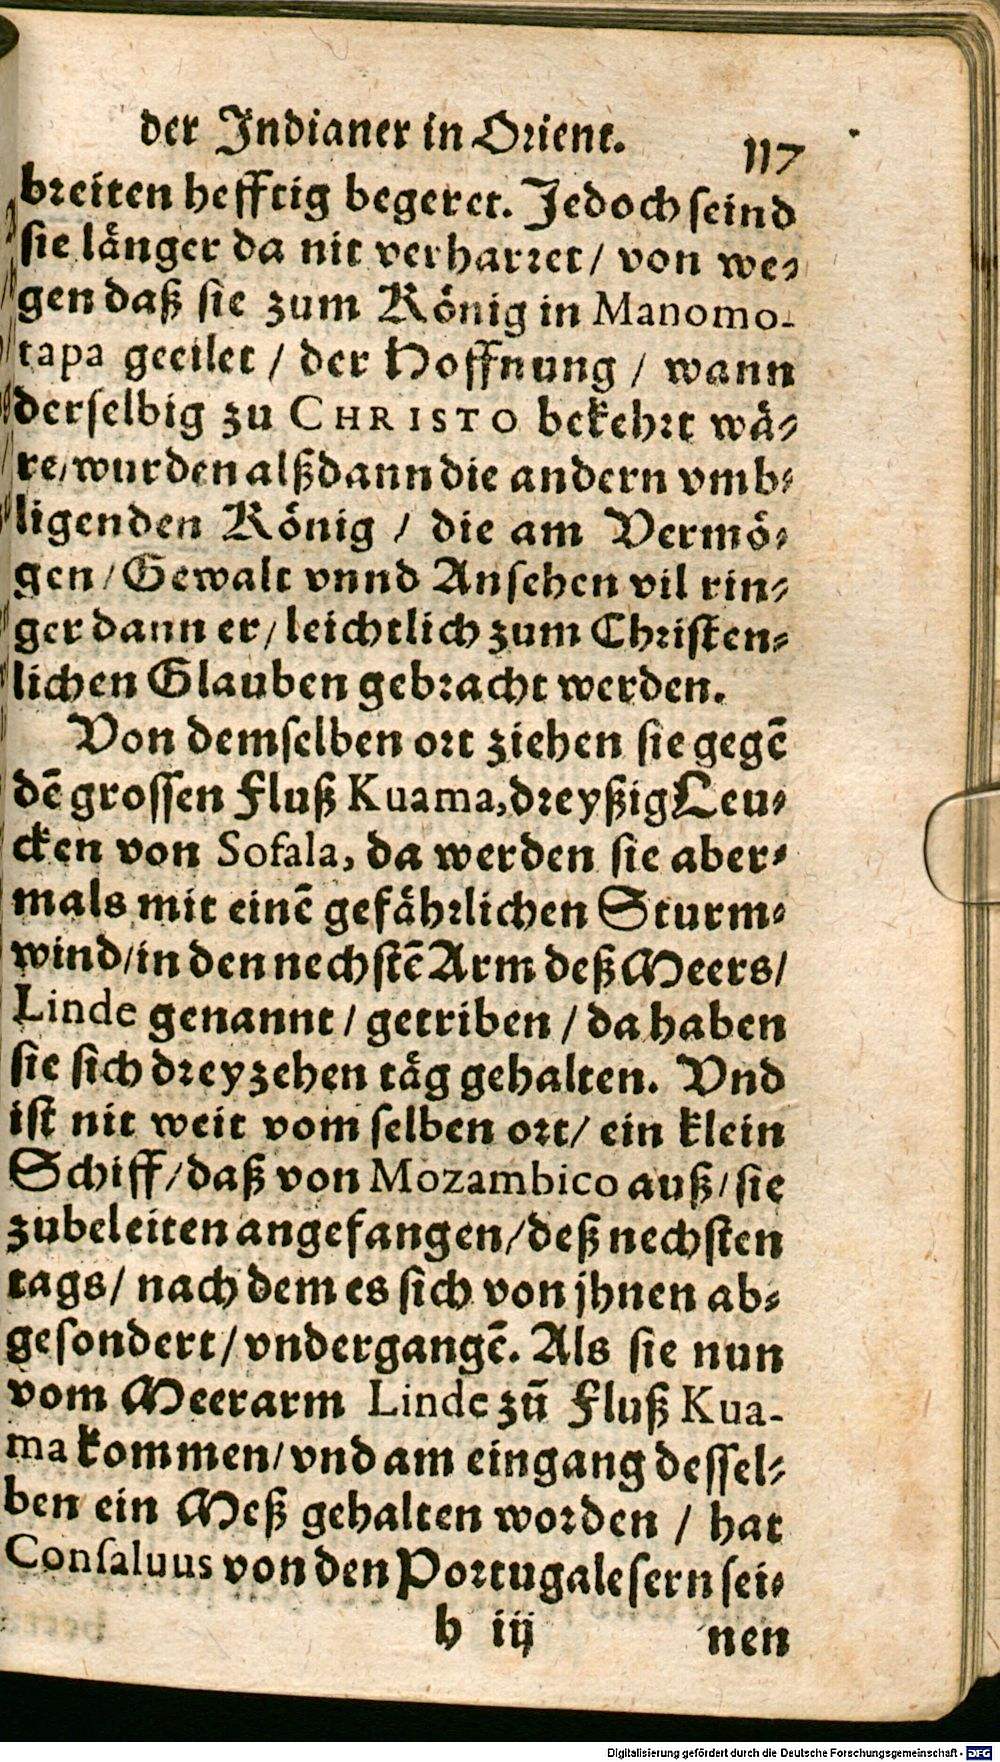 der Jndianer in Orient. 117
breiten hefftig begeret. Jedoch seind
sie länger da nit verharret / von we-
gen daß sie zum König in Manomo-
tapa geeilet / der Hoffnung / wann
derselbig zu CHRISTO bekehrt wä-
re/ wurden alßdann die andern vmb-
ligenden König / die am Vermö-
gen / Gewalt vnnd Ansehen vil rin-
ger dann er/ leichtlich zum Christen-
lichen Glauben gebracht werden.
Von demselben ort ziehen sie gegē
dē grossen Fluß Kuama, dreyßig Leu-
cken von Sofala, da werden sie aber-
mals mit einē gefährlichen Sturm-
wind/ in den nechstē Arm deß Meers/
Linde genannt / getriben / da haben
sie sich dreyzehen täg gehalten. Vnd
ist nit weit vom selben ort/ ein klein
Schiff/ daß von Mozambico auß/ sie
zubeleiten angefangen/ deß nechsten
tags/ nach dem es sich von jhnen ab-
gesondert/ vndergangē. Als sie nun
vom Meerarm Linde zū Fluß Kua-
ma kommen/ vnd am eingang dessel-
ben ein Meß gehalten worden / hat
Consaluus von den Portugalesern sei-
h iij nen
Digitalisierung gefördert durch die Deutsche Forschungsgemeinschaft - DFG